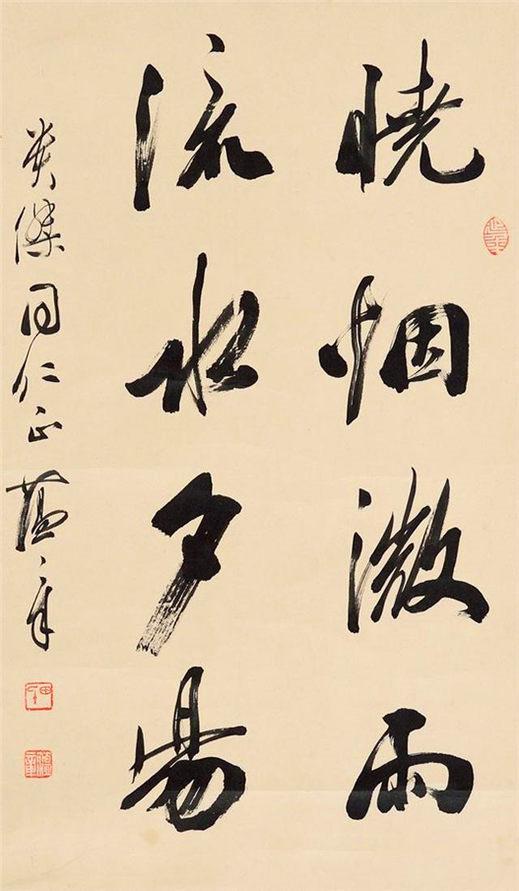 曉烟微雨
流水夕陽
英傑同仁正 蕴章